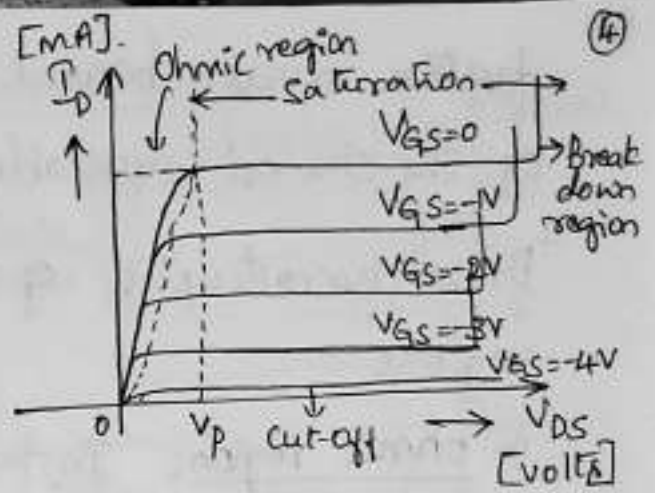 [mA].
④
I_D
Ohmic region
saturation
V_GS=0
Break
down
region
V_GS=-1V
V_GS=-2V
V_GS=-3V
V_GS=-4V
0
V_P
cut-off
V_DS
[volts]